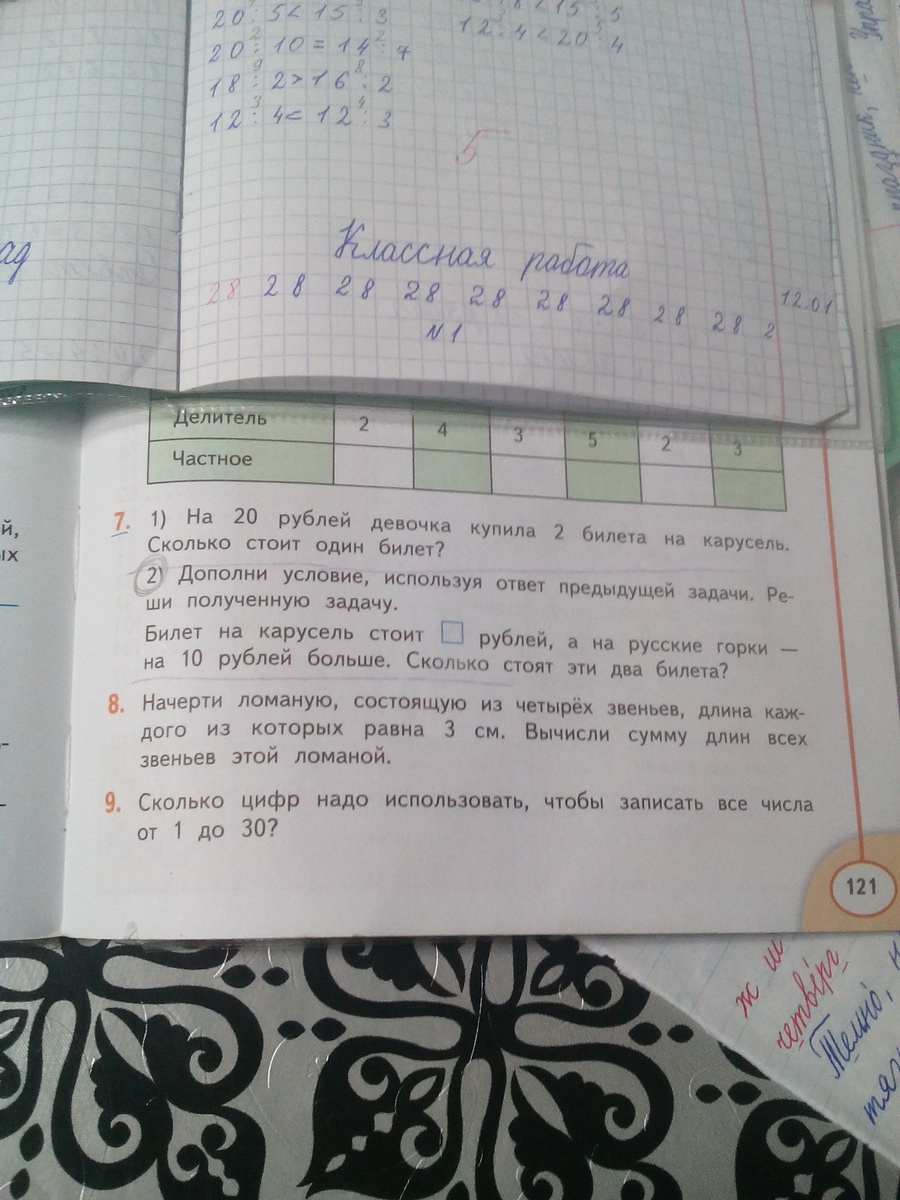 20 : 5 < 15 : 3
20 : 10 = 14 : 7
12 : 4 < 20 : 4
18 : 2 > 16 : 2
12 : 4 < 12 : 3
5
ад
Классная работа
12.01
28 28 28 28 28 28 28 28 28 2
N 1
Делитель 2 4 3 5 2 3
Частное
7. 1) На 20 рублей девочка купила 2 билета на карусель.
Сколько стоит один билет?
2) Дополни условие, используя ответ предыдущей задачи. Ре-
ши полученную задачу.
Билет на карусель стоит рублей, а на русские горки —
на 10 рублей больше. Сколько стоят эти два билета?
8. Начерти ломаную, состоящую из четырёх звеньев, длина каж-
дого из которых равна 3 см. Вычисли сумму длин всех
звеньев этой ломаной.
9. Сколько цифр надо использовать, чтобы записать все числа
от 1 до 30?
121
й,
ых
ж ш
четверг
Темно,